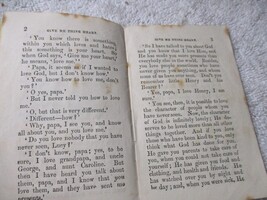 2 GIVE ME THINE HEART.
'You know there is something
within you which loves and hates;
this something is your heart. So
when God says, 'Give me your heart,'
he means, 'love me.'"
'Papa, it seems as if I wanted to
love God, but I don't know how.'
'You know how to love me, don't
you?'
'O yes, papa.'
'But I never told you how to love
me.'
'O, but that is very different.'
'Different—how?'
'Why, papa, I see you, and know
all about you, and you love me.'
'Do you love nobody that you have
never seen, Lucy?'
'I don't know, papa; yes, to be
sure, I love grandpapa, and uncle
George, and aunt Caroline. But
then I have heard you talk about
them, papa, and I know that you
love them, and they have sent me
presents.'
GIVE ME THINE HEART. 3
'So I have talked to you about God
and you know that I love Him, and
He has made you more presents than
everybody else in the world. Besides,
you love people sometimes who have
never given you anything, and whom
some of us have never seen. Don't
you remember little Henry and his
Bearer?'
'Yes, papa.'
'You see, then, it is possible to love
the character of people whom you
have never seen. Now, the character
of God is infinitely lovely; He de-
serves to be loved more than all other
things together. And if you love
those who have been kind to you, only
think what God has done for you.
He gave you parents to take care of
you. He gave His own Son to die for
you. He has given you food and
clothing, and health and friends. He
has watched over you by night and
by day; and, when you were sick, He